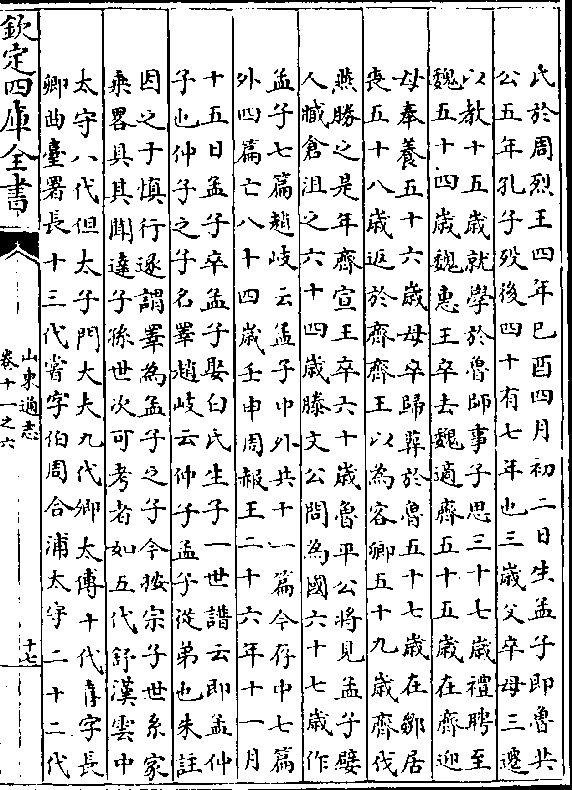 氏於周烈王四年己酉四月初二日生孟子即魯共
公五年孔子歿後四十有七年也三歲父卒母三遷
以教十五歲就學於魯師事子思三十七歲禮聘至
魏五十四歲魏惠王卒去魏適齊五十五歲在齊迎
母奉養五十六歲母卒歸葬於魯五十七歲在鄒居
喪五十八歲返於齊齊王以為客卿五十九歲齊伐
燕勝之是年齊宣王卒六十歲魯平公將見孟子嬖
人臧倉沮之六十四歲滕文公問為國六十七歲作
孟子七篇趙岐云孟子中外共十一篇今存中七篇
外四篇亡八十四歲壬申周赧王二十六年十一月
十五日孟子卒孟子娶田氏生子一世譜云即孟仲
子也仲子之子名睪趙岐云仲子孟子從弟也朱註
因之于慎行遂謂睪為孟子之子今按宗子世系家
乘畧具其聞達子孫世次可考者如五代舒漢雲中
太守八代但太子門大夫九代卿太傅十代字長
卿曲臺署長十三代嘗字伯周合浦太守二十二代
欽定四庫全書
山東通志
卷十一之六
十七